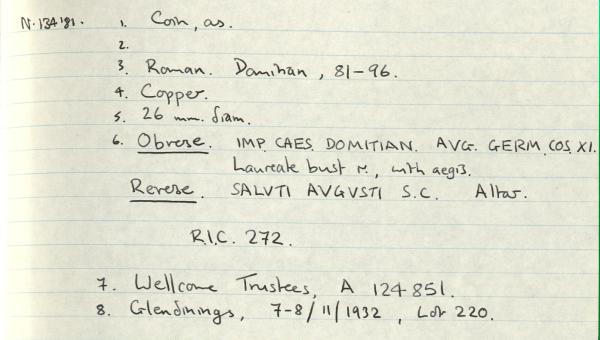 N.134'81. 1. Coin, as.
2.
3. Roman. Domitian, 81-96.
4. Copper.
5. 26 mm. diam.
6. Obverse. IMP. CAES. DOMITIAN. AVG. GERM. COS XI.
Laureate bust r., with aegis.
Reverse. SALVTI AVGVSTI S.C. Altar.
R.I.C. 272.
7. Wellcome Trustees, A 124851.
8. Glendinings, 7-8/11/1932, Lot 220.